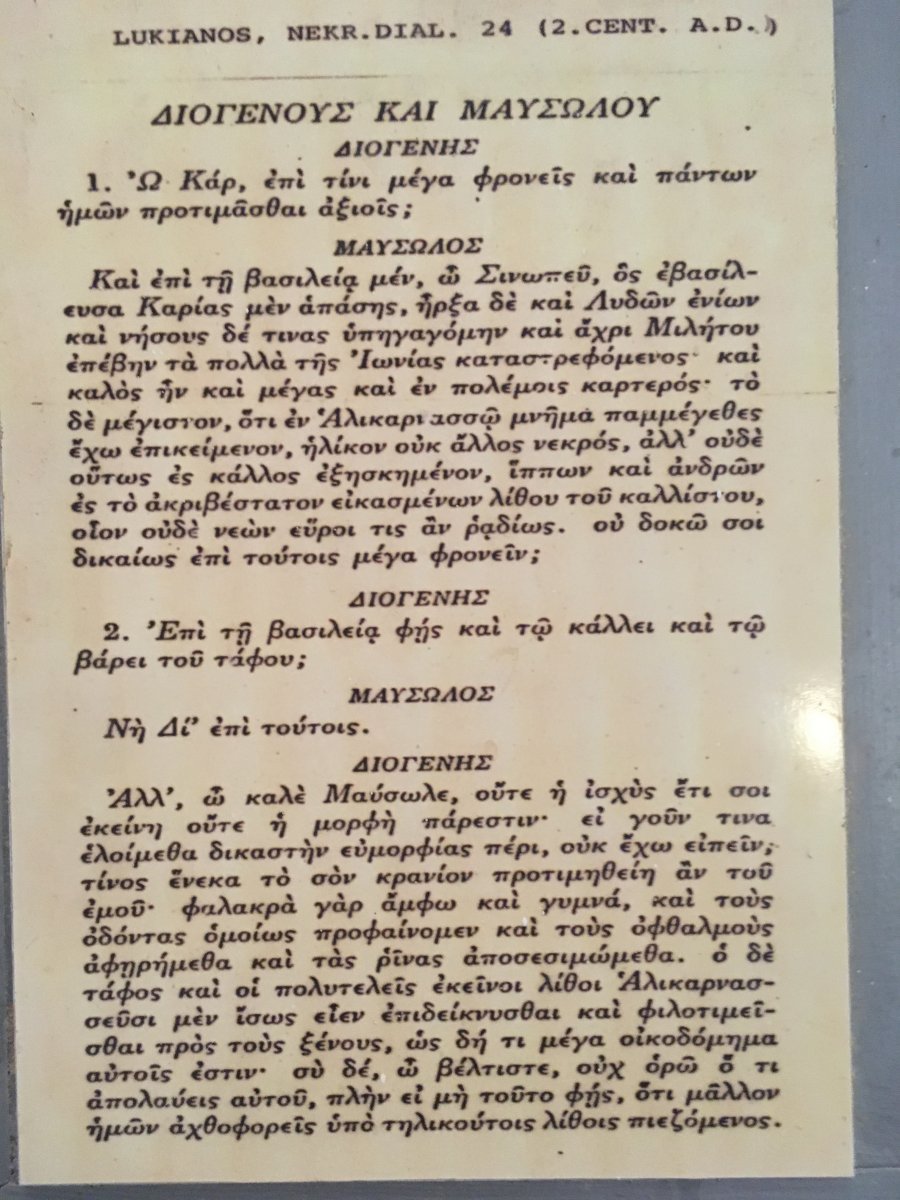 LUKIANOS, NEKR.DIAL. 24 (2.CENT. A.D.)
ΔΙΟΓΕΝΟΥΣ ΚΑΙ ΜΑΥΣΩΛΟΥ
ΔΙΟΓΕΝΗΣ
1. Ὦ Κάρ, ἐπὶ τίνι μέγα φρονεῖς καὶ πάντων
ἡμῶν προτιμᾶσθαι ἀξιοῖς;
ΜΑΥΣΩΛΟΣ
Καὶ ἐπὶ τῇ βασιλείᾳ μέν, ὦ Σινωπεῦ, ὃς ἐβασίλ-
ευσα Καρίας μὲν ἁπάσης, ἦρξα δὲ καὶ Λυδῶν ἐνίων
καὶ νήσους δέ τινας ὑπηγαγόμην καὶ ἄχρι Μιλήτου
ἐπέβην τὰ πολλὰ τῆς Ἰωνίας καταστρεφόμενος· καὶ
καλὸς ἦν καὶ μέγας καὶ ἐν πολέμοις καρτερός· τὸ
δὲ μέγιστον, ὅτι ἐν Ἁλικαρνασσῷ μνῆμα παμμέγεθες
ἔχω ἐπικείμενον, ἡλίκον οὐκ ἄλλος νεκρός, ἀλλ' οὐδὲ
οὕτως ἐς κάλλος ἐξησκημένον, ἵππων καὶ ἀνδρῶν
ἐς τὸ ἀκριβέστατον εἰκασμένων λίθου τοῦ καλλίστου,
οἷον οὐδὲ νεὼν εὕροι τις ἂν ῥᾳδίως. οὐ δοκῶ σοι
δικαίως ἐπὶ τούτοις μέγα φρονεῖν;
ΔΙΟΓΕΝΗΣ
2. Ἐπὶ τῇ βασιλείᾳ φῄς καὶ τῷ κάλλει καὶ τῷ
βάρει τοῦ τάφου;
ΜΑΥΣΩΛΟΣ
Νὴ Δί' ἐπὶ τούτοις.
ΔΙΟΓΕΝΗΣ
Ἀλλ', ὦ καλὲ Μαύσωλε, οὔτε ἡ ἰσχὺς ἔτι σοι
ἐκείνη οὔτε ἡ μορφὴ πάρεστιν· εἰ γοῦν τινα
ἑλοίμεθα δικαστὴν εὐμορφίας πέρι, οὐκ ἔχω εἰπεῖν,
τίνος ἕνεκα τὸ σὸν κρανίον προτιμηθείη ἂν τοῦ
ἐμοῦ· φαλακρὰ γὰρ ἄμφω καὶ γυμνά, καὶ τοὺς
ὀδόντας ὁμοίως προφαίνομεν καὶ τοὺς ὀφθαλμοὺς
ἀφῃρήμεθα καὶ τὰς ῥῖνας ἀποσεσιμώμεθα. ὁ δὲ
τάφος καὶ οἱ πολυτελεῖς ἐκεῖνοι λίθοι Ἁλικαρνασ-
σεῦσι μὲν ἴσως εἶεν ἐπιδείκνυσθαι καὶ φιλοτιμεῖ-
σθαι πρὸς τοὺς ξένους, ὡς δή τι μέγα οἰκοδόμημα
αὐτοῖς ἐστιν· σὺ δέ, ὦ βέλτιστε, οὐχ ὁρῶ ὅ τι
ἀπολαύεις αὐτοῦ, πλὴν εἰ μὴ τοῦτο φῄς, ὅτι μᾶλλον
ἡμῶν ἀχθοφορεῖς ὑπὸ τηλικούτοις λίθοις πιεζόμενος.